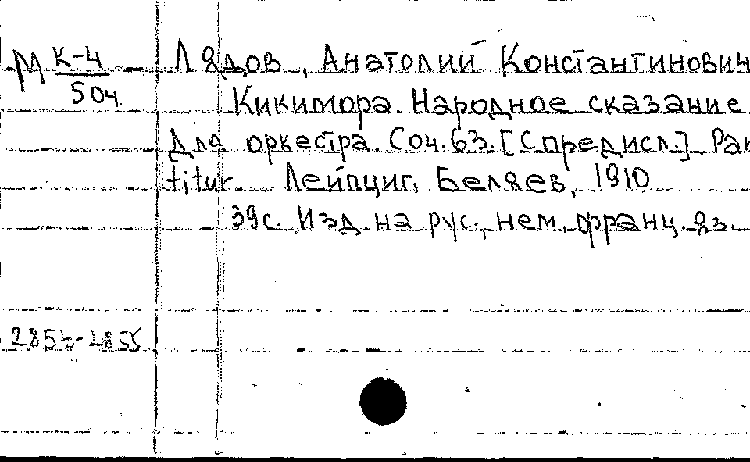 М К-4
504
Лядов, Анатолий Константинович
Кикимора. Народное сказание
для оркестра. Соч. 63. [С предисл.] Par
titur. Лейпциг, Беляев, 1910
39с. Изд. на рус., нем., франц. яз.